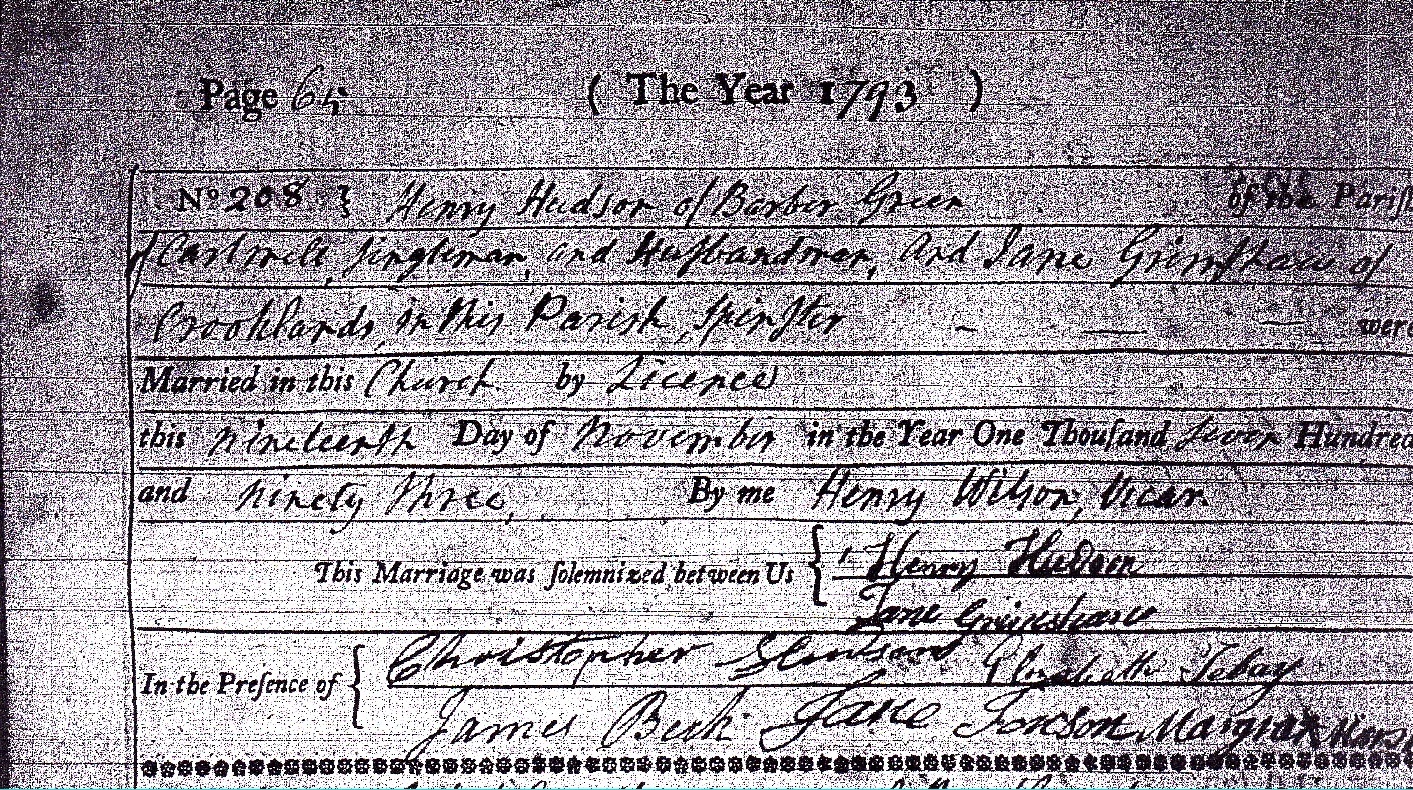 Page 65 ( The Year 1793 )
No 208 } Henry Hudson of Barber Green of the Pariſ
of Cartmell, Singleman, and Huſbandman, and Jane Grimſhaw of
Crooklands, in this Parish, Spinſter were
Married in this Church by Licence
this nineteenth Day of November in the Year One Thouſand Seven Hundred
and ninety three, By me Henry Wilson, Vicar
This Marriage was ſolemnized between Us { Henry Hudson
Jane Grimshaw
In the Preſence of { Christopher Elizabeth Tebay
James Beck Jane Jackson